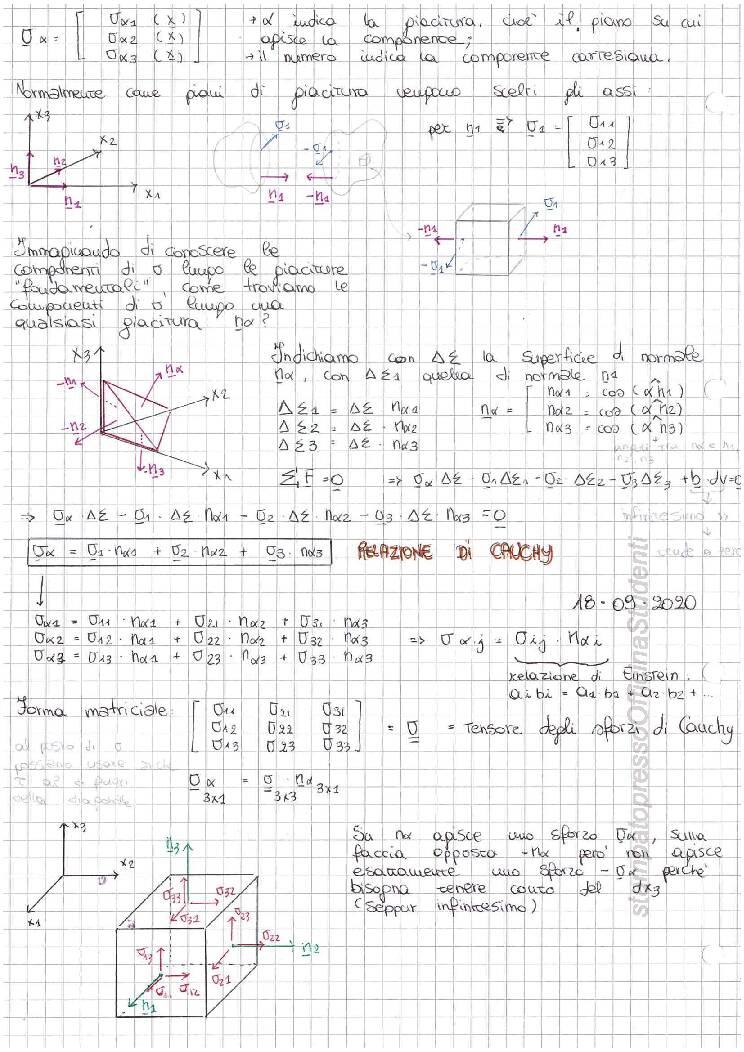 σα = [ σα1 (x) → α indica la giacitura, cioè il piano su cui
σα2 (x) agisce la componente;
σα3 (x) ] → il numero indica la componente cartesiana.
Normalmente come piani di giacitura vengono scelti gli assi:
x3
x2
x1
n3
n2
n1
σ1
-σ1
n1
-n1
per n1 ⇒ σ1 = [ σ11
σ12
σ13 ]
σ1
-n1
n1
-σ1
Immaginando di conoscere le
componenti di σ lungo le giaciture
"fondamentali", come troviamo le
componenti di σ lungo una
qualsiasi giacitura nα?
x3
x2
x1
nα
-n1
-n2
-n3
Indichiamo con ΔΣ la superficie di normale
nα, con ΔΣ1 quella di normale n1
ΔΣ1 = ΔΣ nα1
ΔΣ2 = ΔΣ · nα2
ΔΣ3 = ΔΣ · nα3
nα = [ nα1 = cos (α^n1)
nα2 = cos (α^n2)
nα3 = cos (α^n3)
ΣF = 0 ⇒ σα ΔΣ - σ1 ΔΣ1 - σ2 ΔΣ2 - σ3 ΔΣ3 + b · dv = 0
⇒ σα · ΔΣ - σ1 · ΔΣ nα1 - σ2 · ΔΣ · nα2 - σ3 · ΔΣ · nα3 = 0
infinitesimo ⇒
tende a zero
σα = σ1 · nα1 + σ2 · nα2 + σ3 · nα3 RELAZIONE DI CAUCHY
18·09·2020
σα1 = σ11 · nα1 + σ21 · nα2 + σ31 · nα3
σα2 = σ12 · nα1 + σ22 · nα2 + σ32 · nα3
σα3 = σ13 · nα1 + σ23 · nα3 + σ33 nα3
⇒ σαj = σij · nαi
relazione di Einstein.
ai bi = a1 · b1 + a2 · b2 + ...
Forma matriciale: [ σ11 σ21 σ31
σ12 σ22 σ32
σ13 σ23 σ33 ] = σ = Tensore degli sforzi di Cauchy
al posto di σ
possiamo usare anche
σα = σ · nα
3x1 3x3 3x1
x3
x2
x1
n3
n2
n1
σ33
σ32
σ31
σ23
σ22
σ21
σ13
σ12
Su nα agisce uno sforzo σα, sulla
faccia opposta -nα però non agisce
esattamente uno sforzo -σα perché
bisogna tenere conto del dx3
(seppur infinitesimo)
stampatopressoOfficinaStudenti